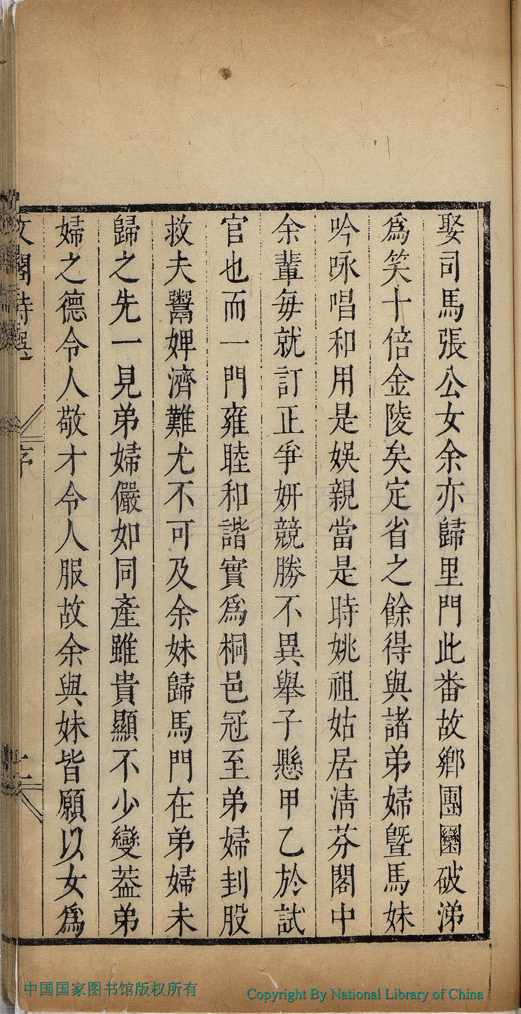 娶司馬張公女余亦歸里門此番故鄉團圞破涕
為笑十倍金陵矣定省之餘得與諸弟婦曁馬妹
吟咏唱和用是娛親當是時姚祖姑居清芬閣中
余輩每就訂正爭妍競勝不異舉子懸甲乙於試
官也而一門雍睦和諧實為桐邑冠至弟婦刲股
救夫鬻婢濟難尤不可及余妹歸馬門在弟婦未
歸之先一見弟婦儼如同產雖貴顯不少變葢弟
婦之德令人敬才令人服故余與妹皆願以女為
序
中国国家图书馆版权所有
Copyright By National Library of China